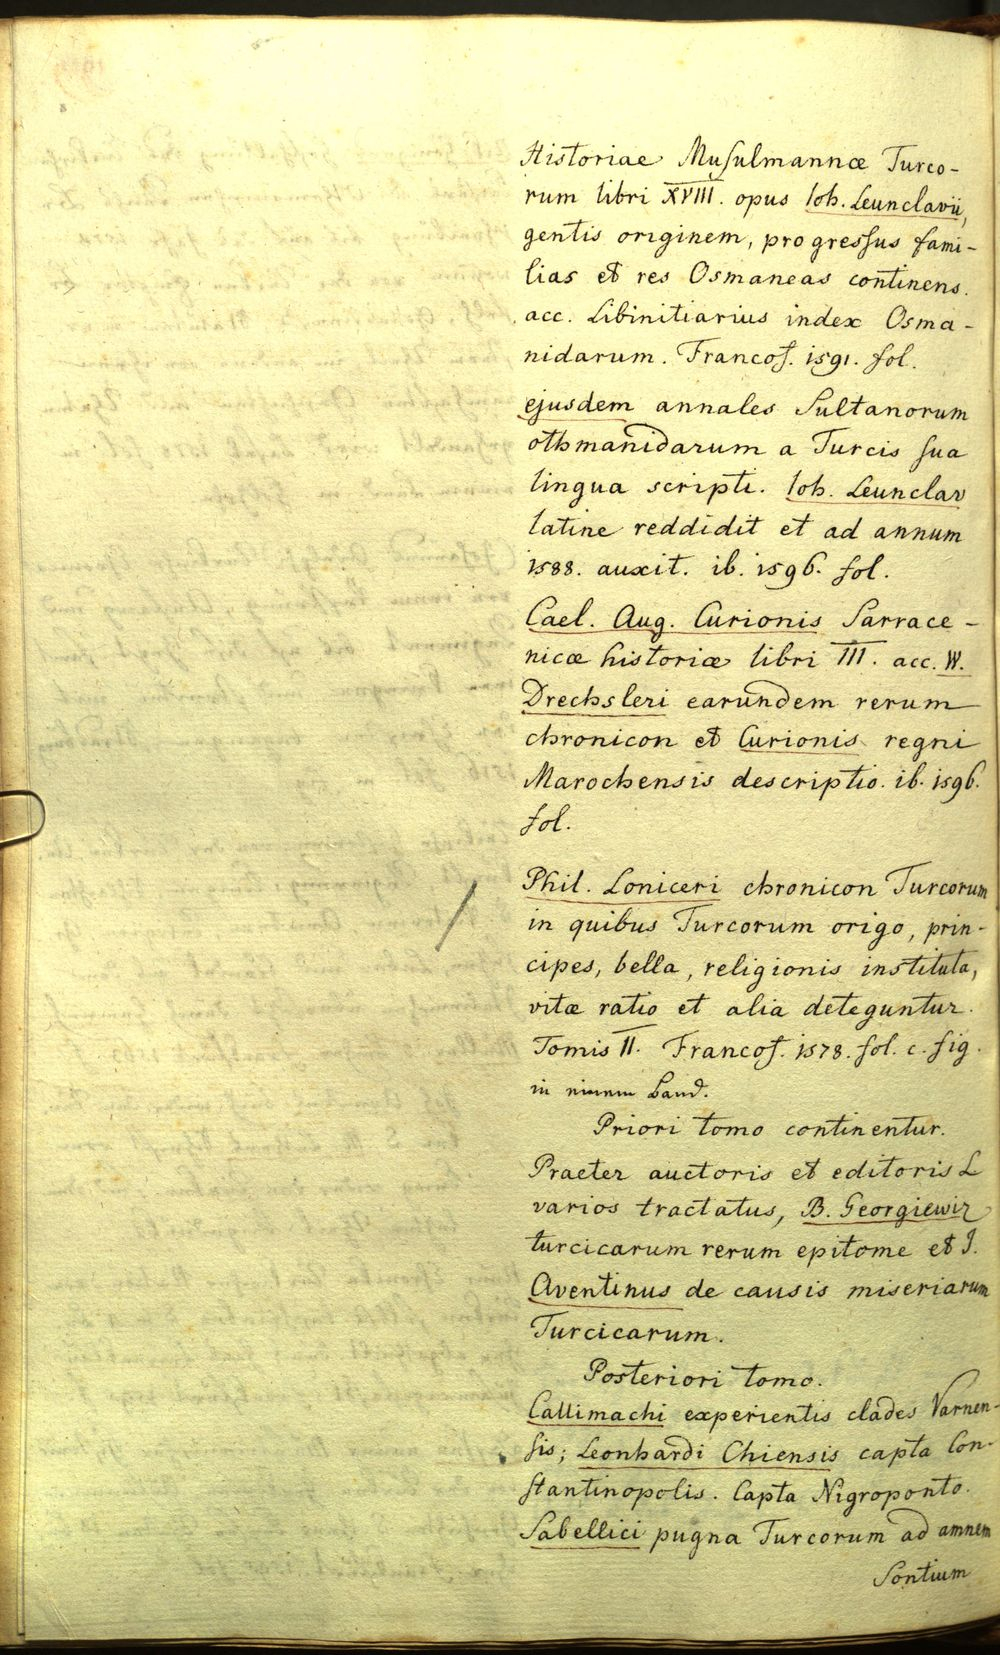 Historiae Musulmannæ Turco-
rum libri XVIII. opus Ioh. Leunclavii,
gentis originem, progressus fami-
lias et res Osmaneas continens.
acc. Libinitiarius index Osma-
nidarum. Francof. 1591. fol.
ejusdem annales Sultanorum
othmanidarum a Turcis sua
lingua scripti. Ioh. Leunclav
latine reddidit et ad annum
1588. auxit. ib. 1596. fol.
Cael. Aug. Curionis Sarrace-
nicæ historiæ libri III. acc. W.
Drechsleri earundem rerum
chronicon et Curionis regni
Marochensis descriptio. ib. 1596.
fol.
Phil. Loniceri chronicon Turcorum
in quibus Turcorum origo, prin-
cipes, bella, religionis instituta,
vitæ ratio et alia deteguntur.
Tomis II. Francof. 1578. fol. c. fig.
in einem Band.
Priori tomo continentur.
Praeter auctoris et editoris L
varios tractatus, B. Georgiewiz
turcicarum rerum epitome et I.
Aventinus de causis miseriarum
Turcicarum.
Posteriori tomo.
Callimachi experientis clades Varnen-
sis; Leonhardi Chiensis capta Con-
stantinopolis. Capta Nigroponto.
Sabellici pugna Turcorum ad amnem
Sontium